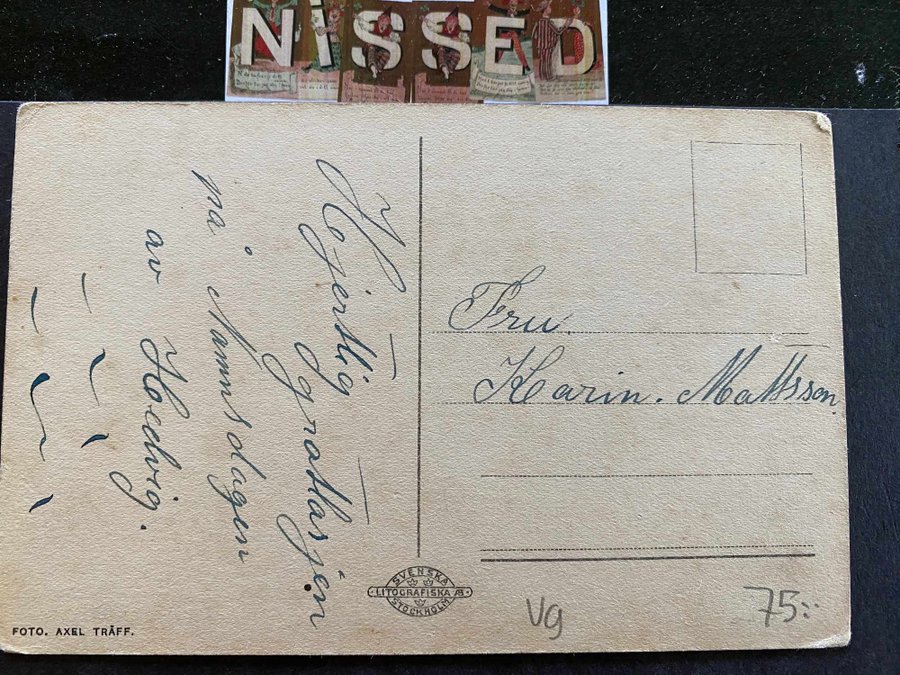 NISSED
Hjertlig
gratlasjen
på Namnsdagen
av Hedvig.
Fru
Karin. Mattsson.
SVENSKA
LITOGRAFISKA AB
STOCKHOLM
Vg
75:-
FOTO. AXEL TRÄFF.